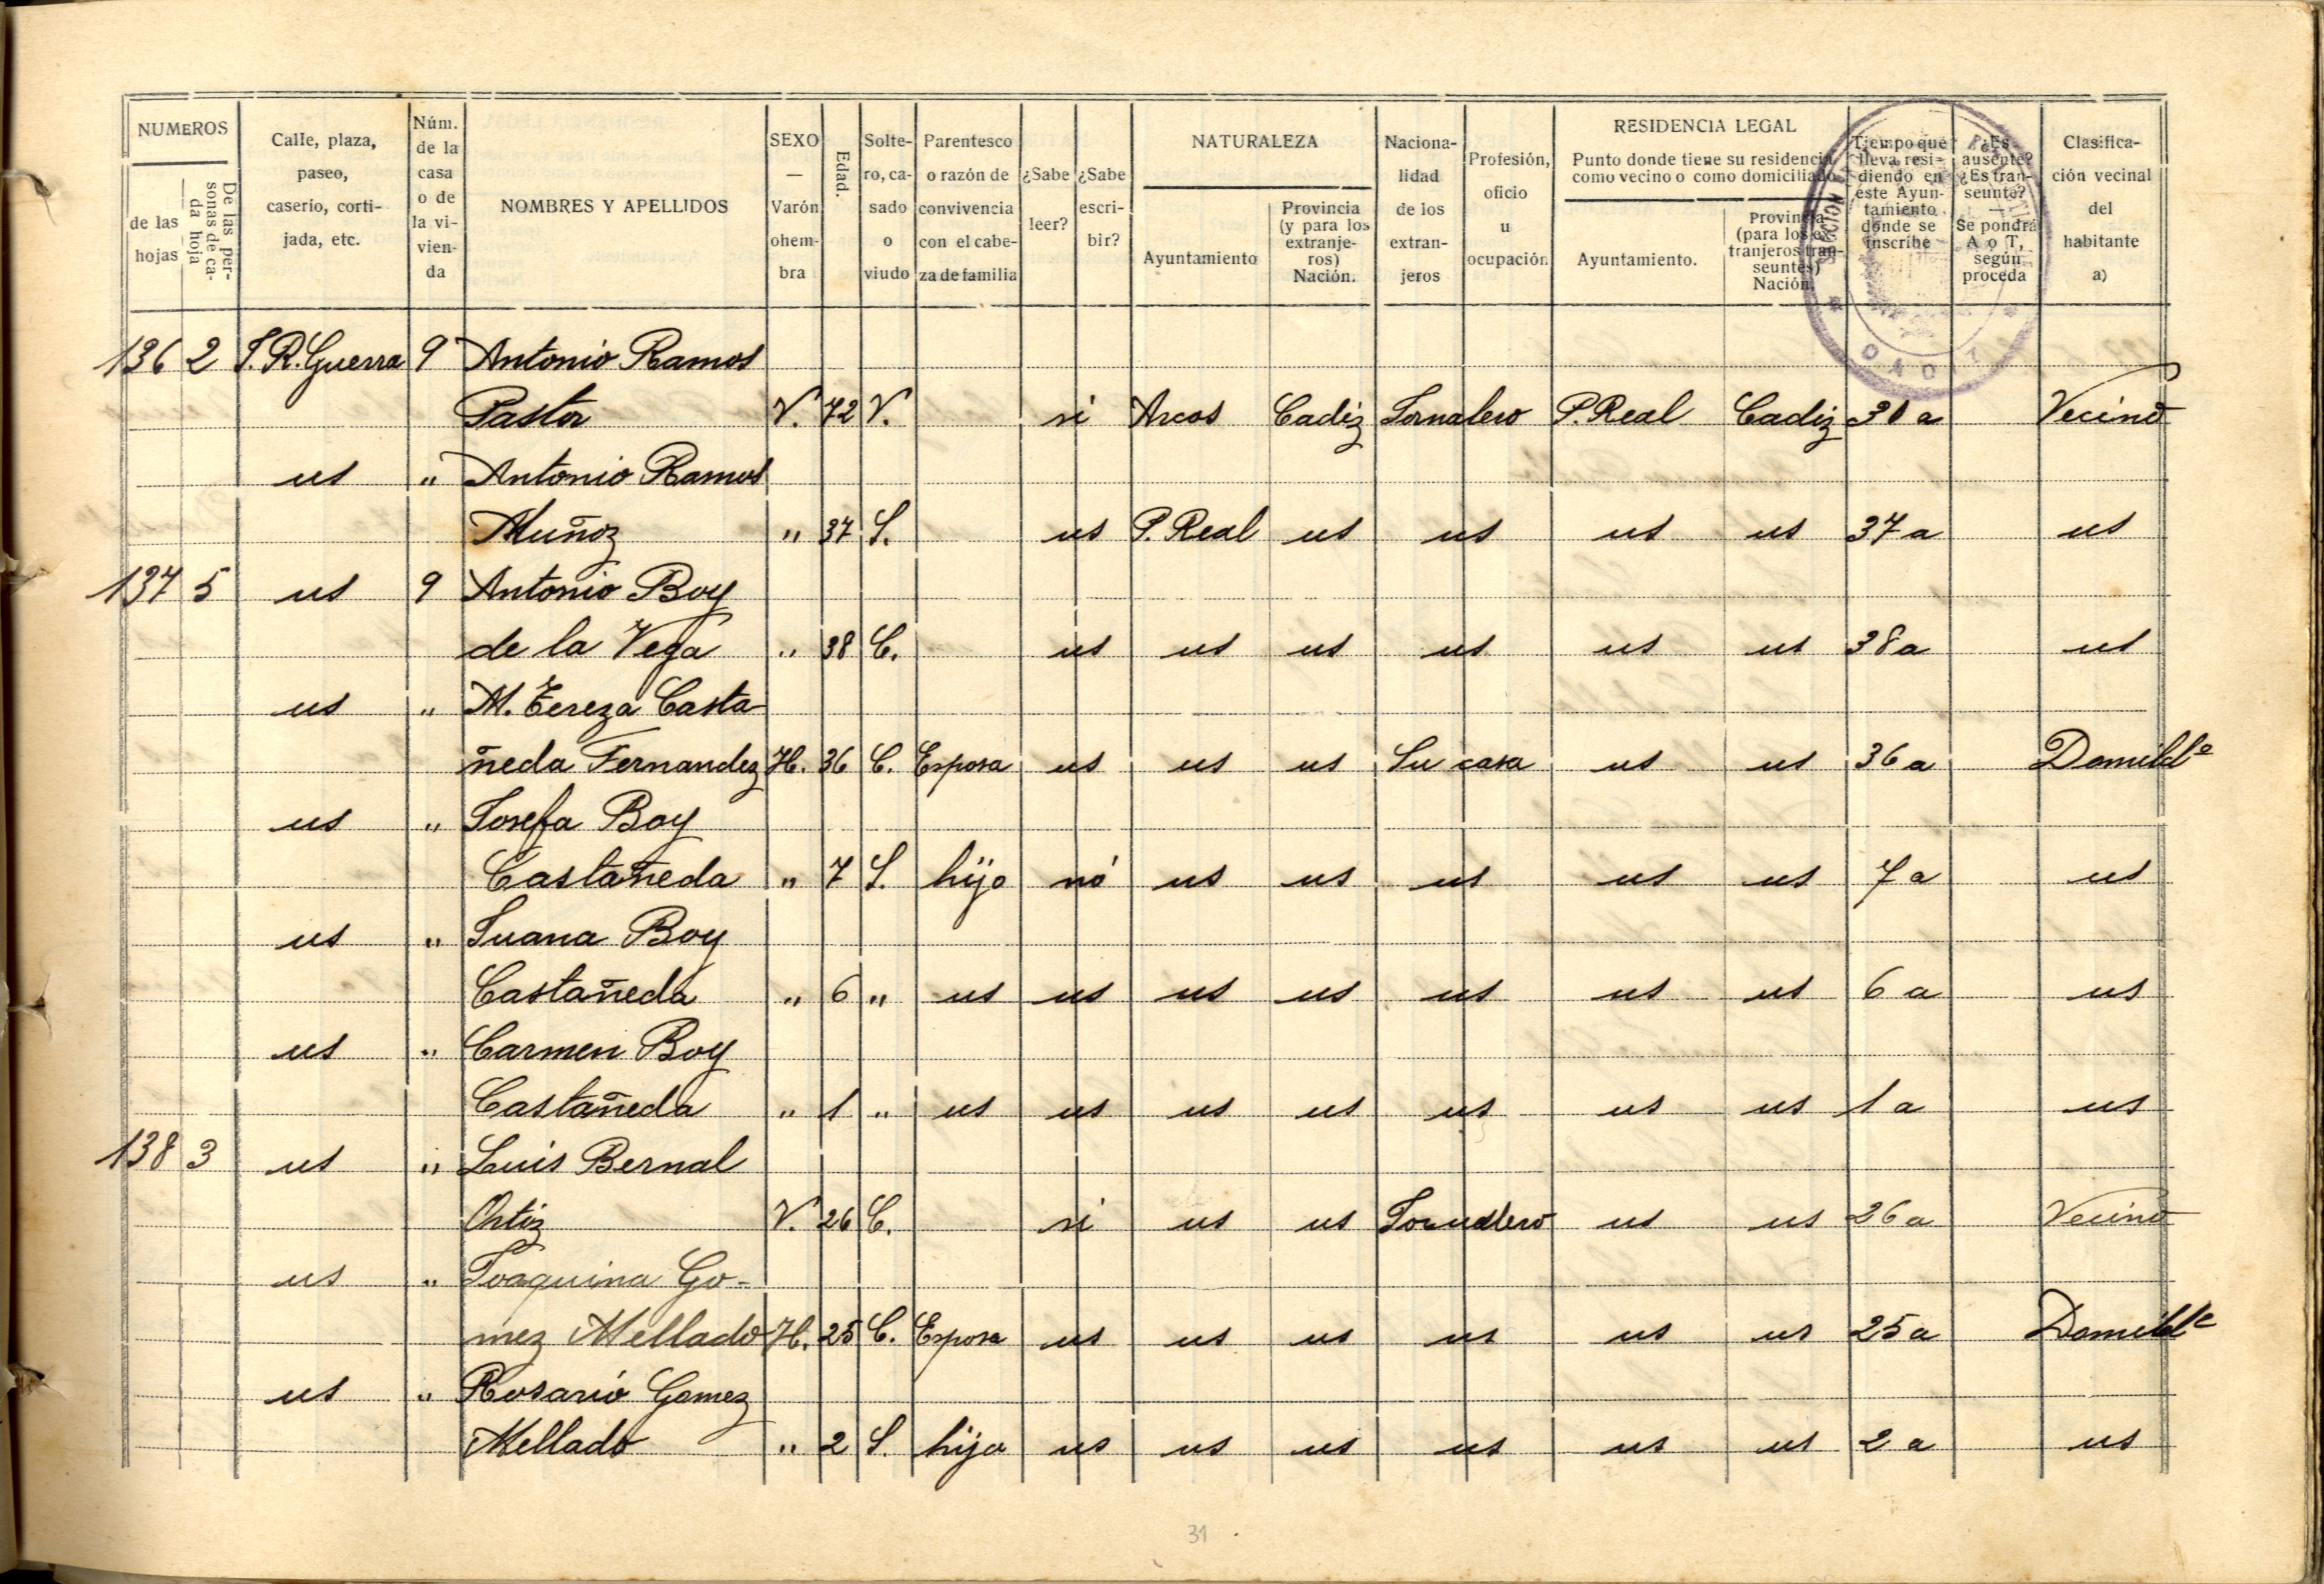 NUMEROS
de las hojas
De las personas de cada hoja
Calle, plaza, paseo, caserío, cortijada, etc.
Núm. de la casa o de la vivienda
NOMBRES Y APELLIDOS
SEXO — Varón ohembra
Edad.
Soltero, casado o viudo
Parentesco o razón de convivencia con el cabeza de familia
¿Sabe leer?
¿Sabe escribir?
NATURALEZA
Ayuntamiento
Provincia (y para los extranjeros) Nación.
Nacionalidad de los extranjeros
Profesión, oficio u ocupación.
RESIDENCIA LEGAL
Punto donde tiene su residencia como vecino o como domiciliado
Ayuntamiento.
Provincia (para los extranjeros transeuntes) Nación.
Tiempo que lleva residiendo en este Ayuntamiento donde se inscribe
¿Es ausente? ¿Es transeunte? — Se pondrá A o T, según proceda
Clasificación vecinal del habitante a)
136 2 J. R. Guerra 9 Antonio Ramos
Pastor V. 72 V. si Arcos Cadiz Jornalero P. Real Cadiz 30 a Vecino
us " Antonio Ramos
Muñoz " 37 S. us P. Real us us us us 37 a us
137 5 us 9 Antonio Boy
de la Vega " 38 C. us us us us us us 38 a us
us " M. Tereza Casta
ñeda Fernandez H. 36 C. Esposa us us us Su casa us us 36 a Domildº
us " Josefa Boy
Castañeda " 7 S. hijo nó us us us us us 7 a us
us " Juana Boy
Castañeda " 6 " us us us us us us us 6 a us
us " Carmen Boy
Castañeda " 1 " us us us us us us us 1 a us
138 3 us " Luis Bernal
Ortiz V. 26 C. si us us Jornalero us us 26 a Vecino
us " Joaquina Go-
mez Mellado H. 25 C. Esposa us us us us us us 25 a Domildº
us " Rosario Gomez
Mellado " 2 S. hija us us us us us us 2 a us
31